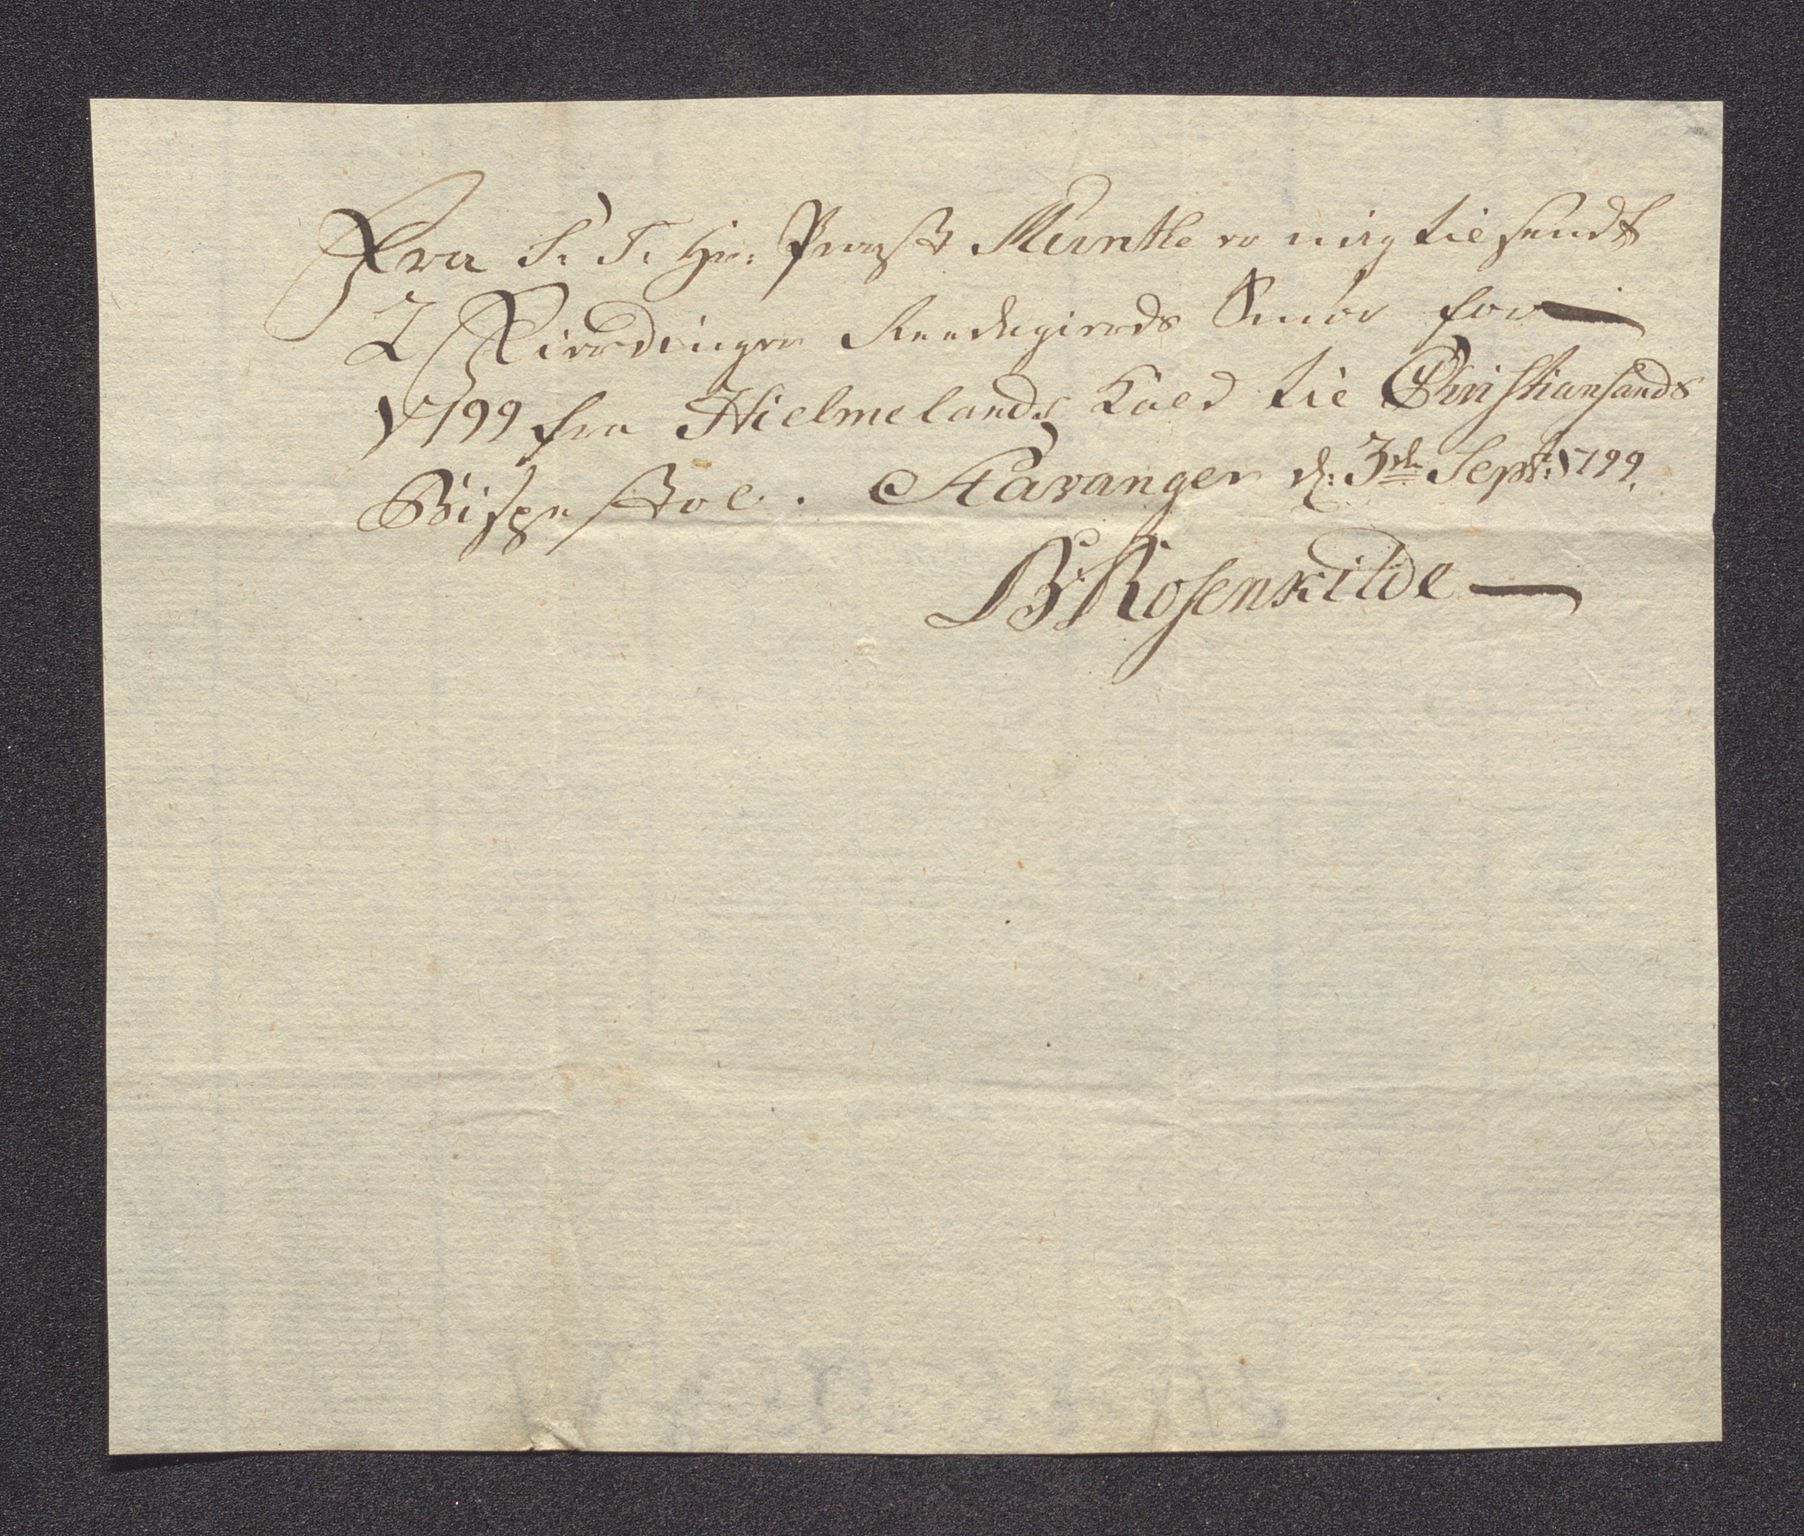 Fra S. T. Hr: Provst Munthe er mig tilsendt
2 Fierdinger Reedegierds Smør for
1799 fra Hielmelands Kald til Christiansands
Bispestol. Stavanger d: 3de Sept: 1799.
B: Rosenkilde